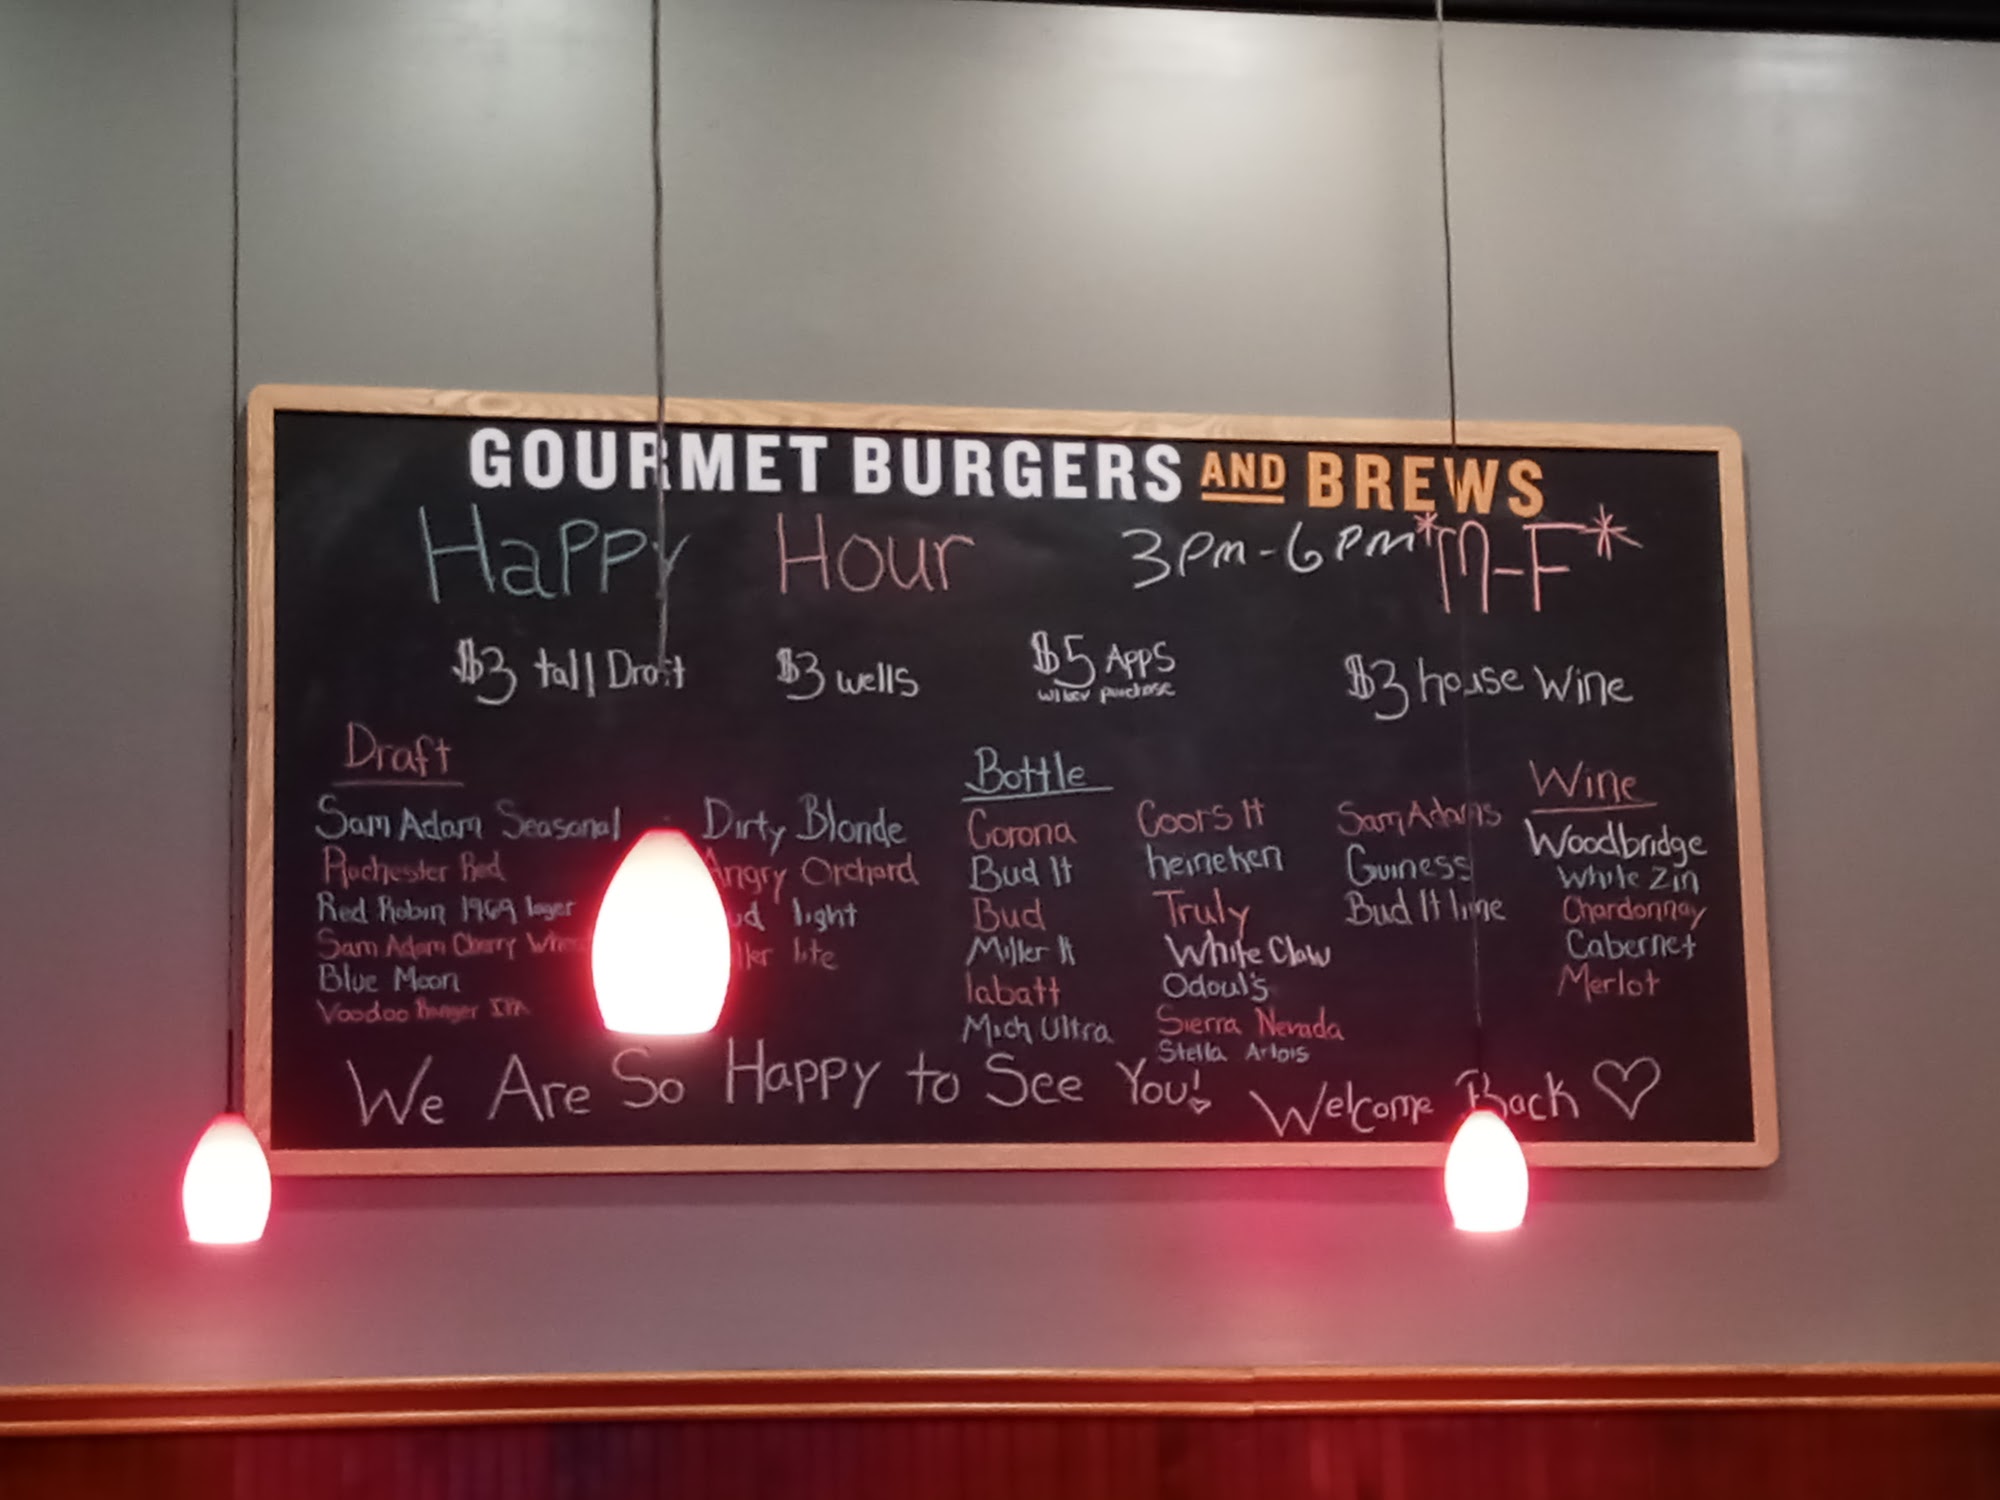 GOURMET BURGERS AND BREWS
Happy Hour 3pm-6pm *M-F*
$3 tall Draft
$3 wells
$5 Apps
w/bev purchase
$3 house wine
Draft
Sam Adam Seasonal
Rochester Red
Red Robin 1969 lager
Sam Adam Cherry
Blue Moon
Voodoo Ranger IPA
Dirty Blonde
Angry Orchard
light
lite
Bottle
Corona
Bud lt
Bud
Miller lt
labatt
Mich Ultra
Coors lt
heineken
Truly
White Claw
Odoul's
Sierra Nevada
Stella Artois
Sam Adams
Guiness
Bud lt lime
Wine
Woodbridge
White Zin
Chardonnay
Cabernet
Merlot
We Are So Happy to See You! Welcome Back